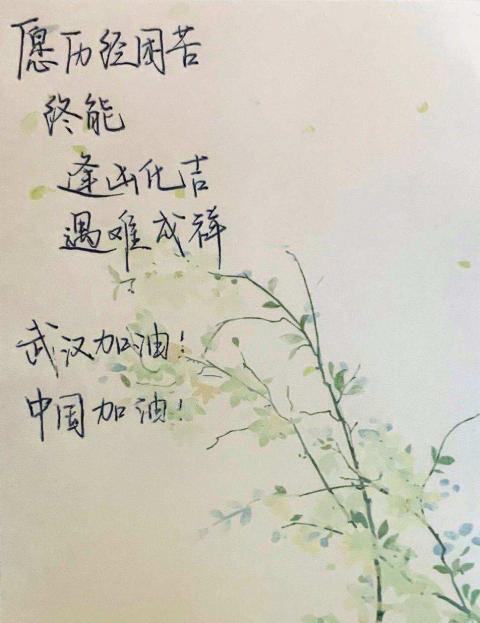 愿历经困苦
终能
逢凶化吉
遇难成祥
武汉加油！
中国加油！